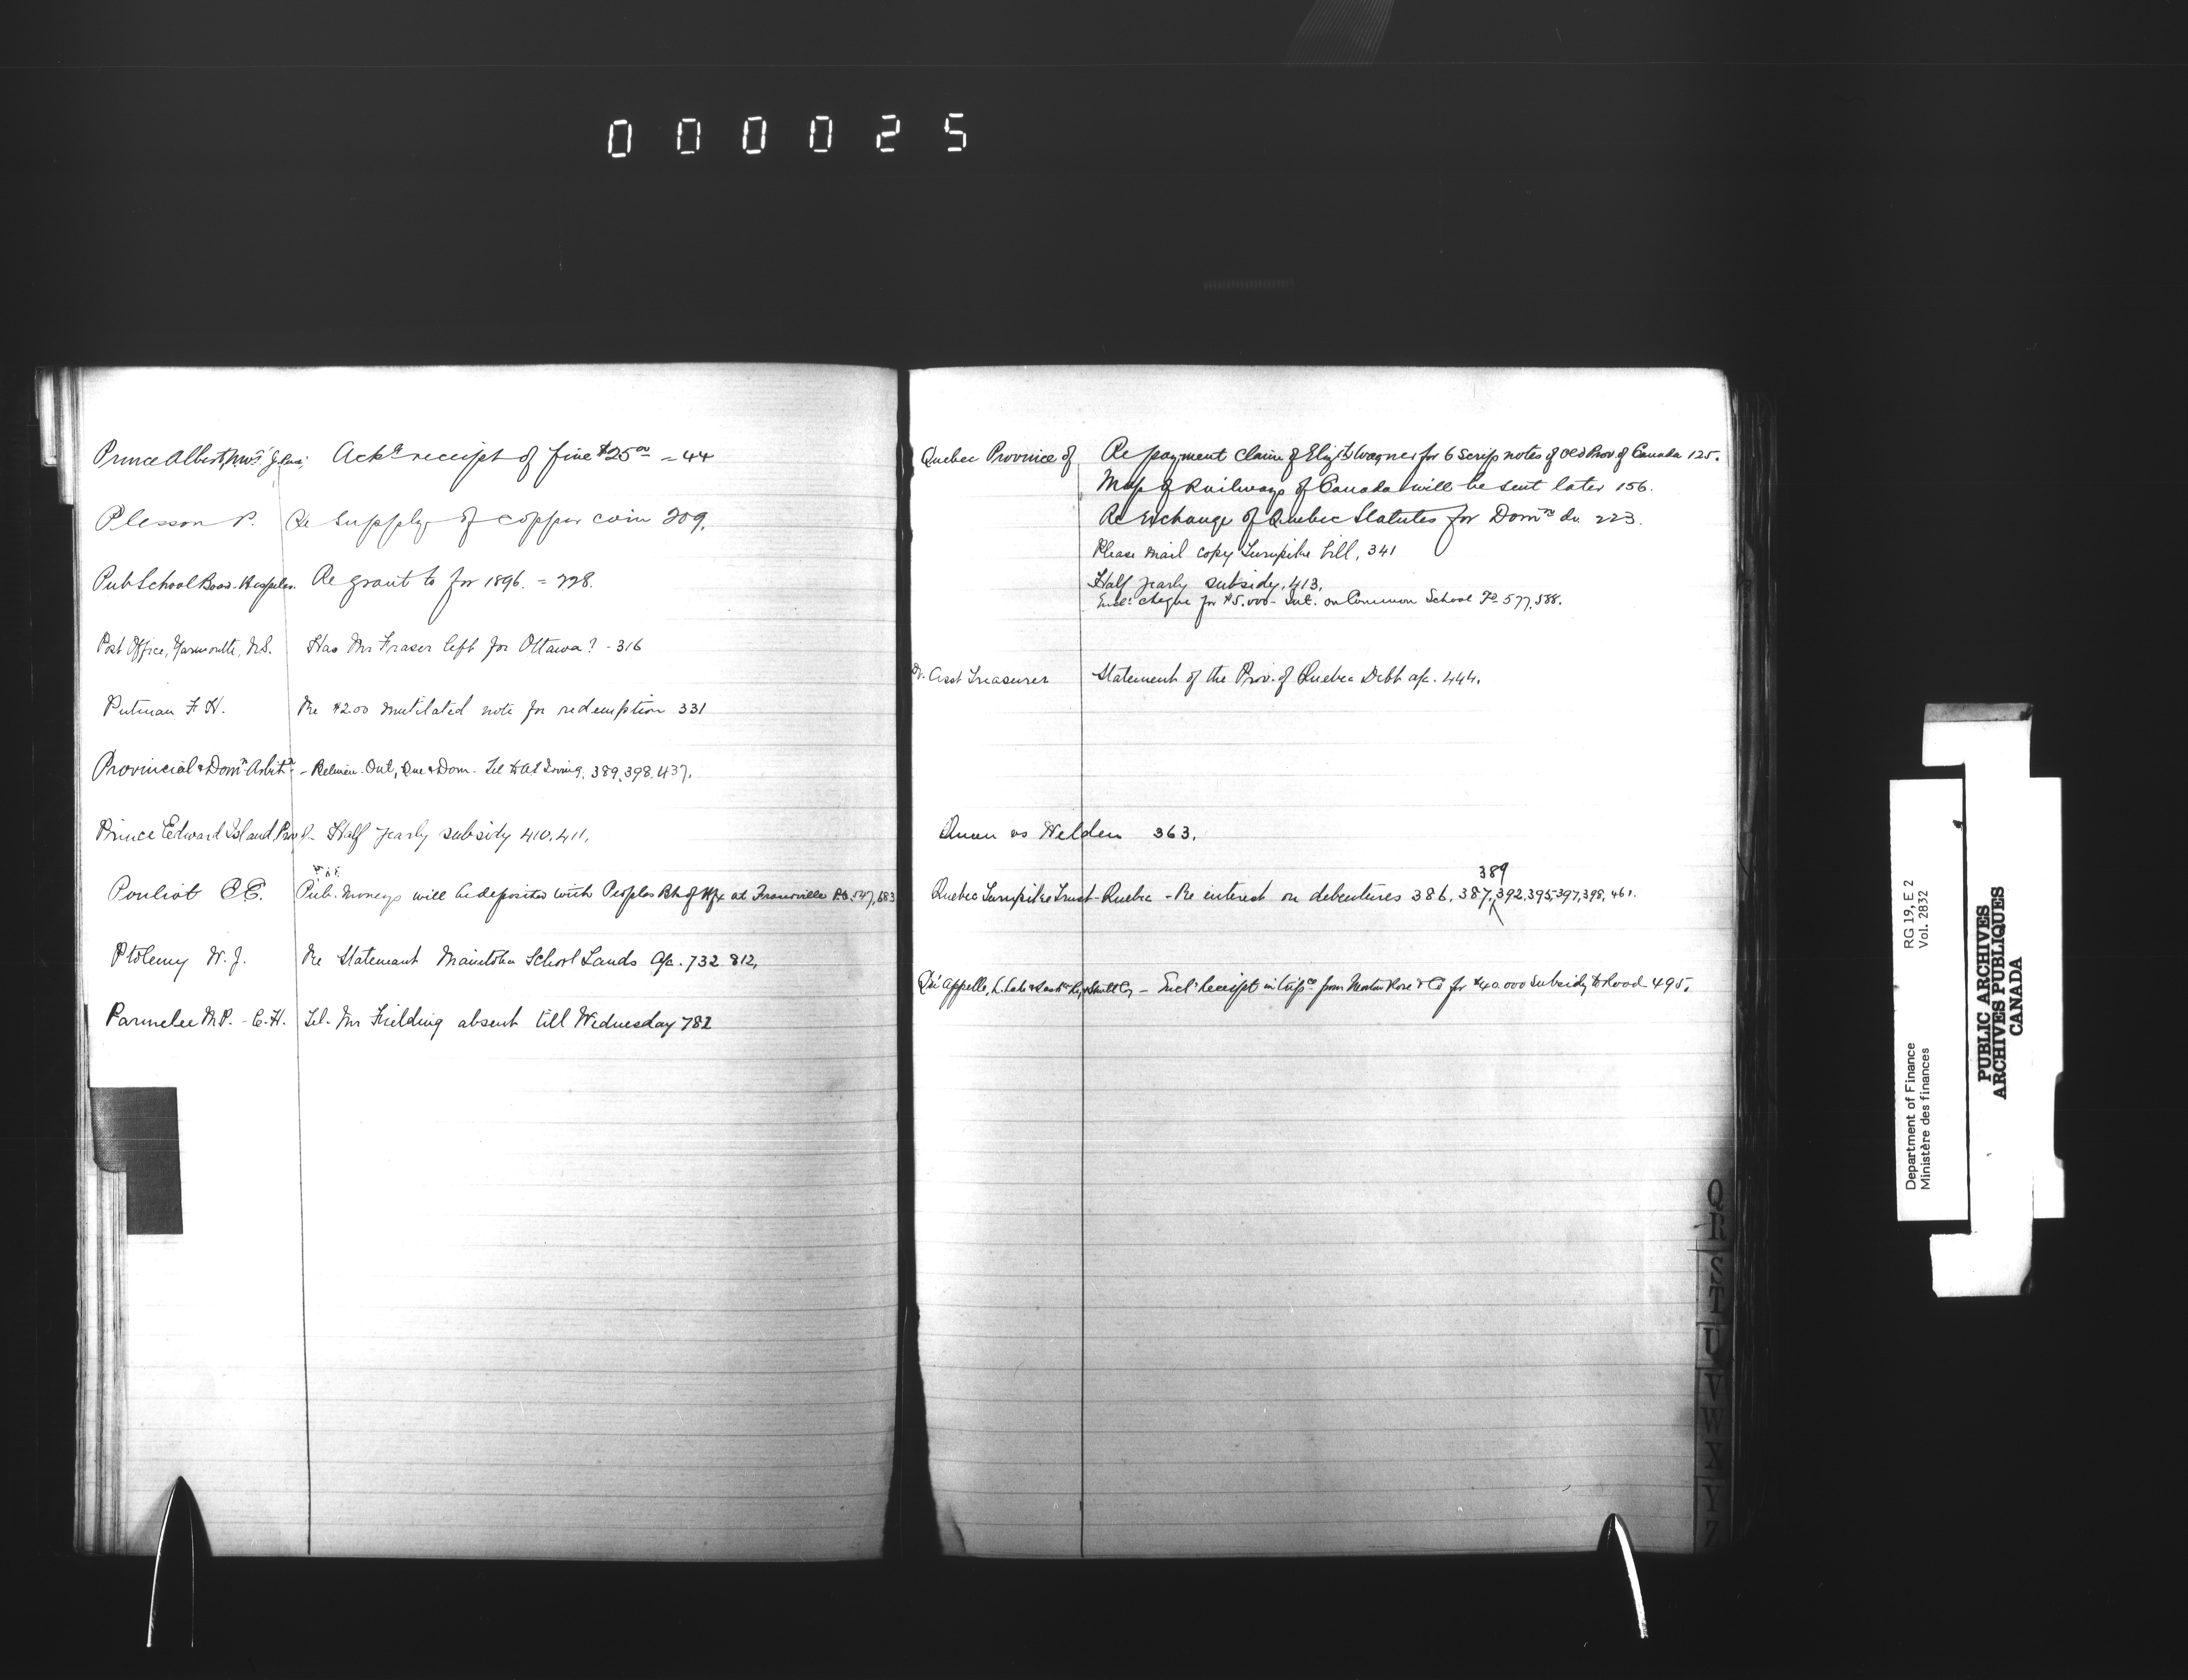 000025
Prince Albert, N.W.T. Ackg receipt of fine $25 00 = 44
Plesson P. Re supply of copper coin 209.
Pub School Board Re grant to for 1896. = 228.
Post Office, Yarmouth, N.S. Has Mr Fraser left for Ottawa? - 316
Putman F. H. Re $2.00 mutilated note for redemption 331
Provincial & Domn Arbitn - Between Ont, Que & Dom. Tel to Irving, 389, 398, 437.
Prince Edward Island, Prov of - Half yearly subsidy 410, 411,
Pouliot C E. Pub. Moneys will be deposited with Peoples Bk of Hfx at Fraserville P.Q. 547, 683
Ptolemy W. J. Re Statement Manitoba School Lands a/c. 732 812,
Parmelee M.P. - C. H. Tel. Mr Fielding absent till Wednesday 782
Quebec Province of Re payment claim of Elizth Wagner for 6 scrip notes of old Prov. of Canada 125.
Map of Railways of Canada will be sent later 156.
Re Exchange of Quebec Statutes for Domn do. 223.
Please mail copy Turnpike bill, 341
Half yearly subsidy, 413,
Encl. cheque for $5.000 - Int. on Common School Fd 577, 588.
Do. Asst Treasurer Statement of the Prov. of Quebec Debt a/c. 444.
Queen vs Welden 363.
389
Quebec Turnpike Trust - Quebec - Re interest on debentures 386, 387, 392, 395, 397, 398, 461.
Qu'Appelle, L. Lake & Sask Ry & Co - Encl receipt in trip from Morton Rose & Co for $40.000 subsidy to Road 495.
Q
R
S
T
U
V
W
X
Y
Z
RG 19, E 2
Vol. 2832
Department of Finance
Ministère des finances
PUBLIC ARCHIVES
ARCHIVES PUBLIQUES
CANADA